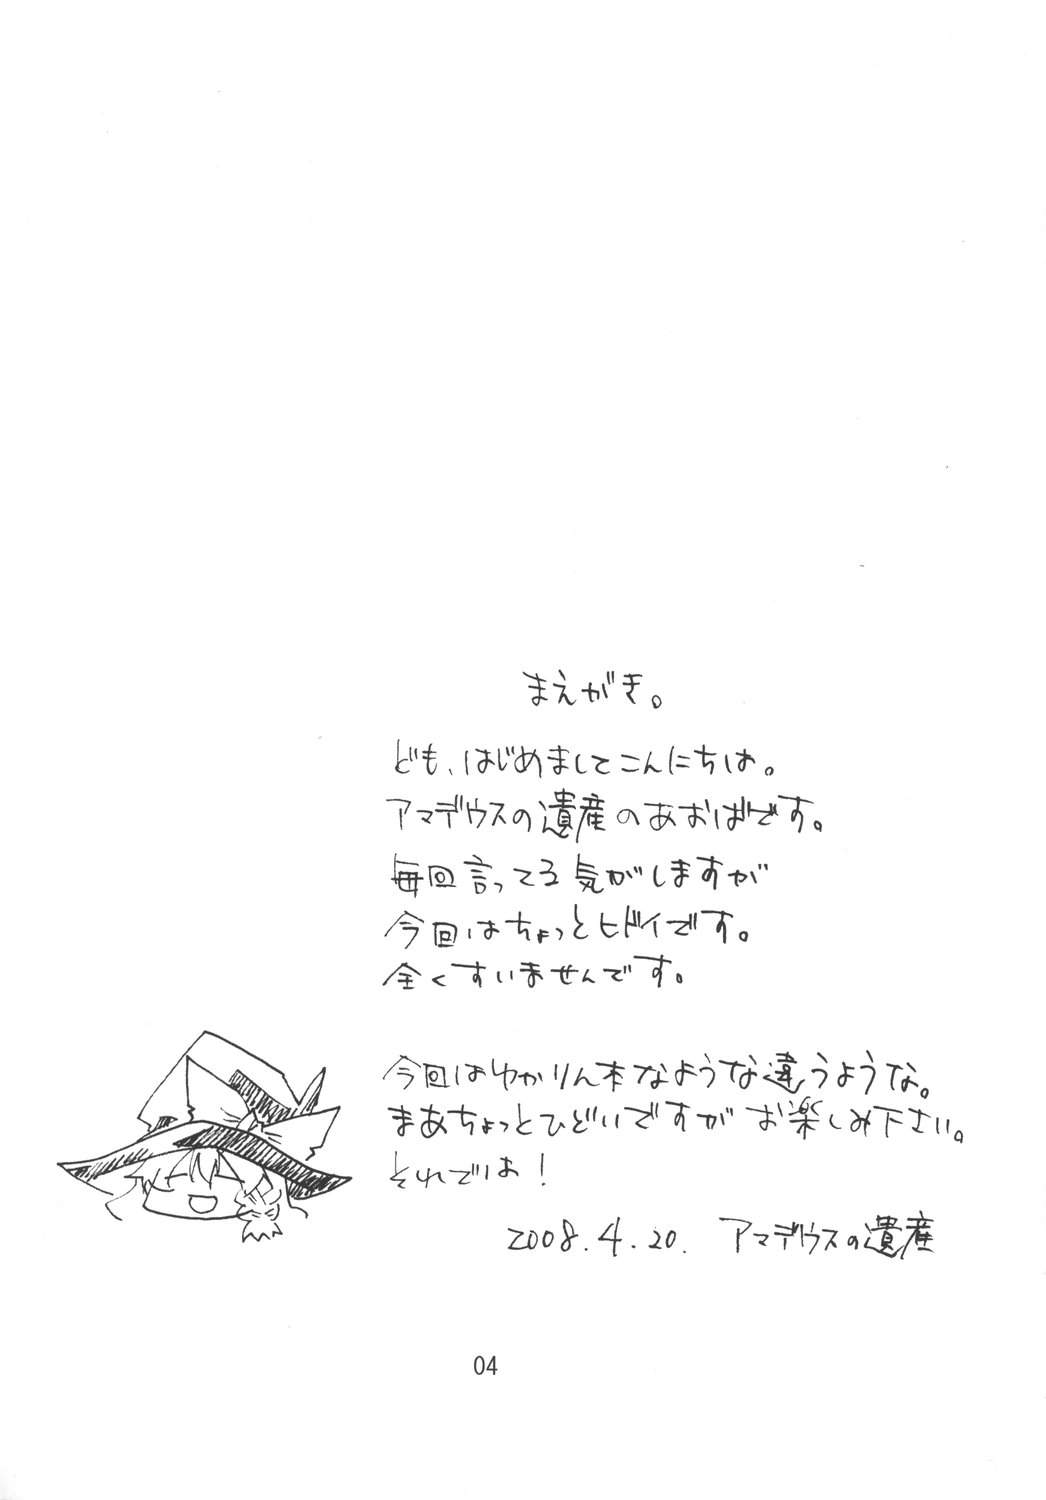 まえがき。
ども、はじめましてこんにちは。
アマデウスの遺産のあおばです。
毎回言ってる気がしますが
今回はちょっとヒドイです。
全くすいませんです。
今回はゆかりん本なような違うような。
まあちょっとひどいですがお楽しみ下さい。
それでは!
2008.4.20. アマデウスの遺産
04